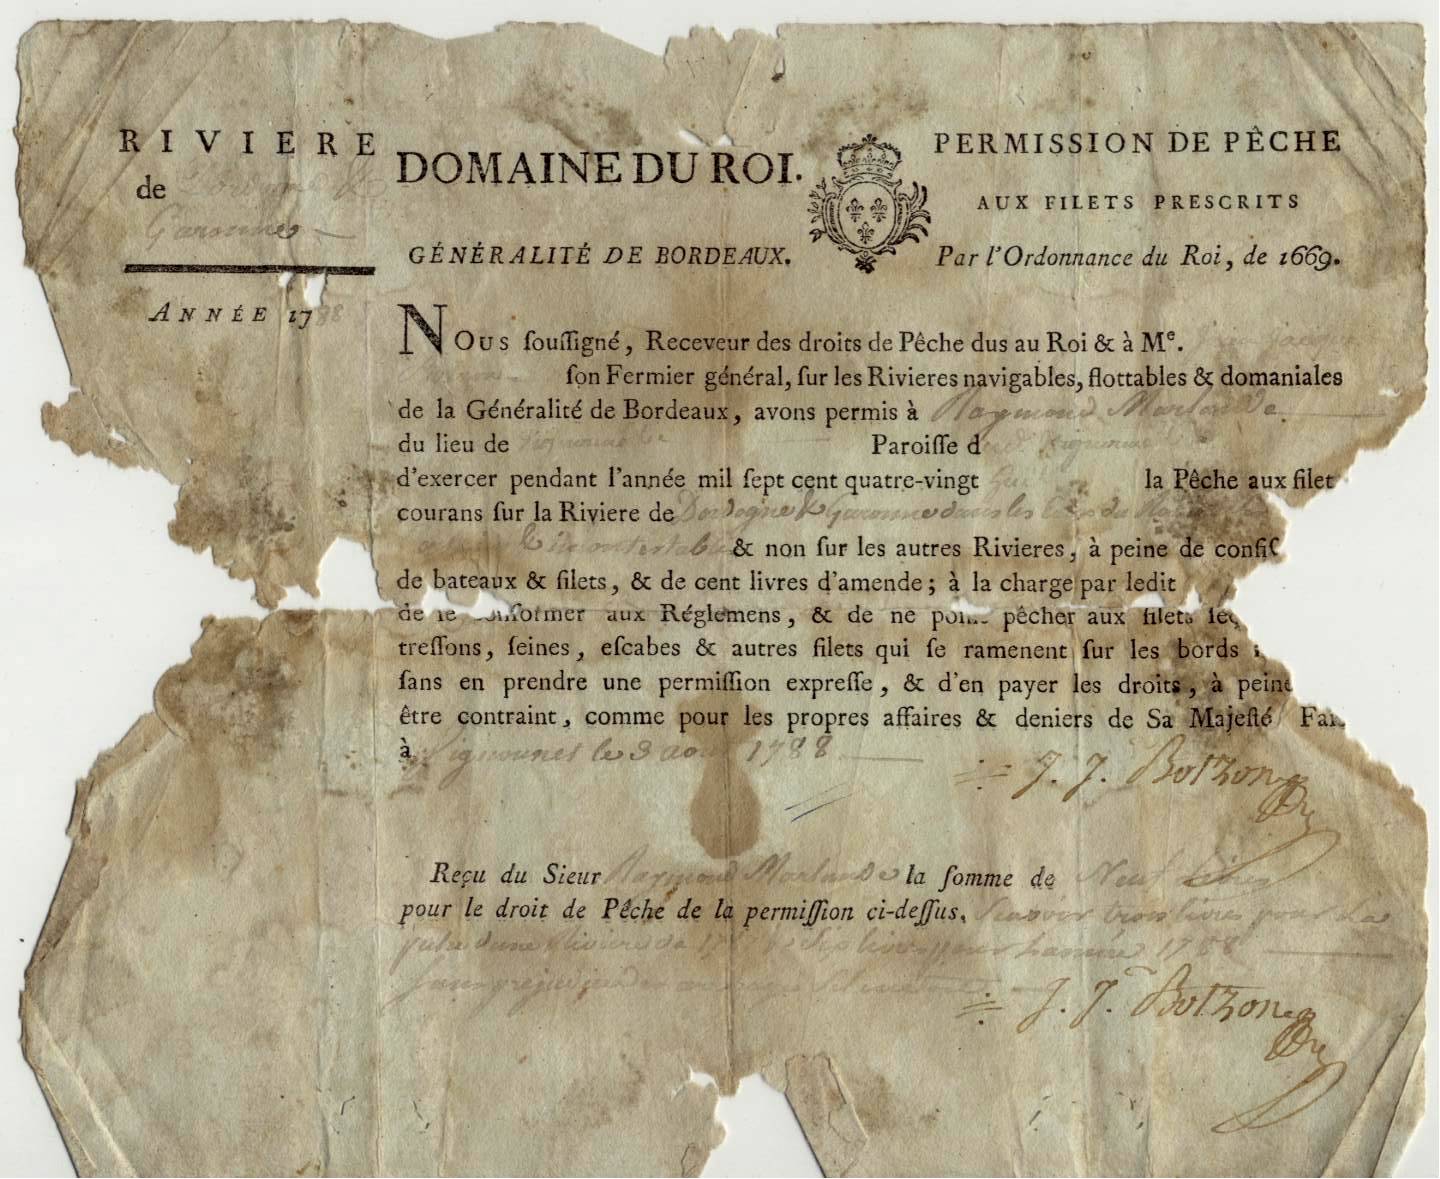 RIVIERE
de Dordogne &
Garonne
ANNÉE 1788
DOMAINE DU ROI.
GÉNÉRALITÉ DE BORDEAUX.
PERMISSION DE PÊCHE
AUX FILETS PRESCRITS
Par l'Ordonnance du Roi, de 1669.
NOUS ſouſſigné, Receveur des droits de Pêche dus au Roi & à Me.
ſon Fermier général, ſur les Rivieres navigables, flottables & domaniales
de la Généralité de Bordeaux, avons permis à Raymond Marlande
du lieu de Paroiſſe d
d'exercer pendant l'année mil ſept cent quatre-vingt huit la Pêche aux filet
courans ſur la Riviere de Dordogne & Garonne dans les
& non ſur les autres Rivieres, à peine de confiſ
de bateaux & filets, & de cent livres d'amende; à la charge par ledit
de ſe conformer aux Réglemens, & de ne point pêcher aux filets
treſſons, ſeines, eſcabes & autres filets qui ſe ramenent ſur les bords
ſans en prendre une permiſſion expreſſe, & d'en payer les droits, à peine
être contraint, comme pour les propres affaires & deniers de Sa Majeſté
à le 3 aout 1788
J. J. Botzon
Reçu du Sieur Raymond Marlande la ſomme de Neuf Livres
pour le droit de Pêche de la permiſſion ci-deſſus, Scavoir trois livres pour
1788
J. J. Botzon